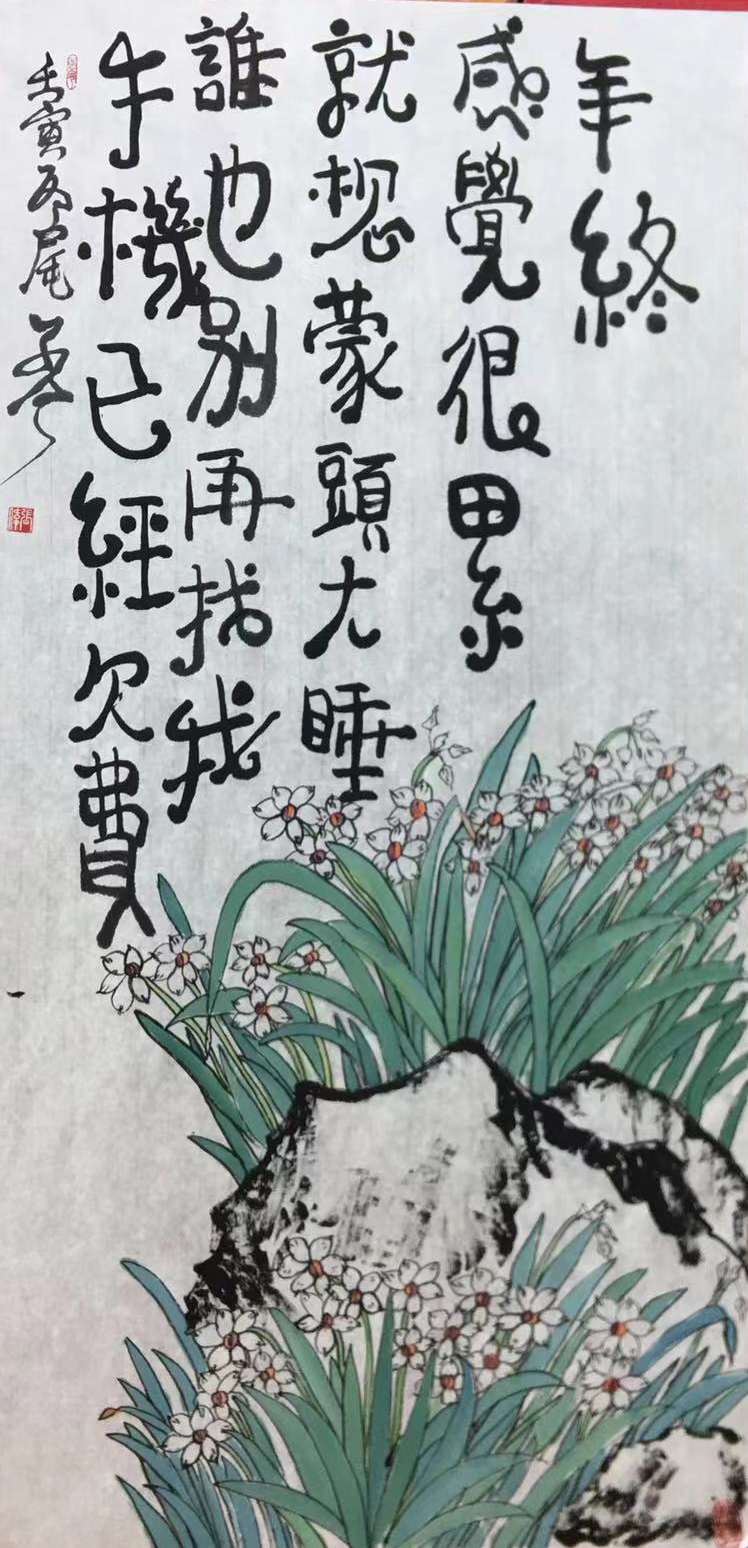 年終
感覺很累
就想蒙頭大睡
誰也別再找我
手機已經欠費
壬寅虎尾